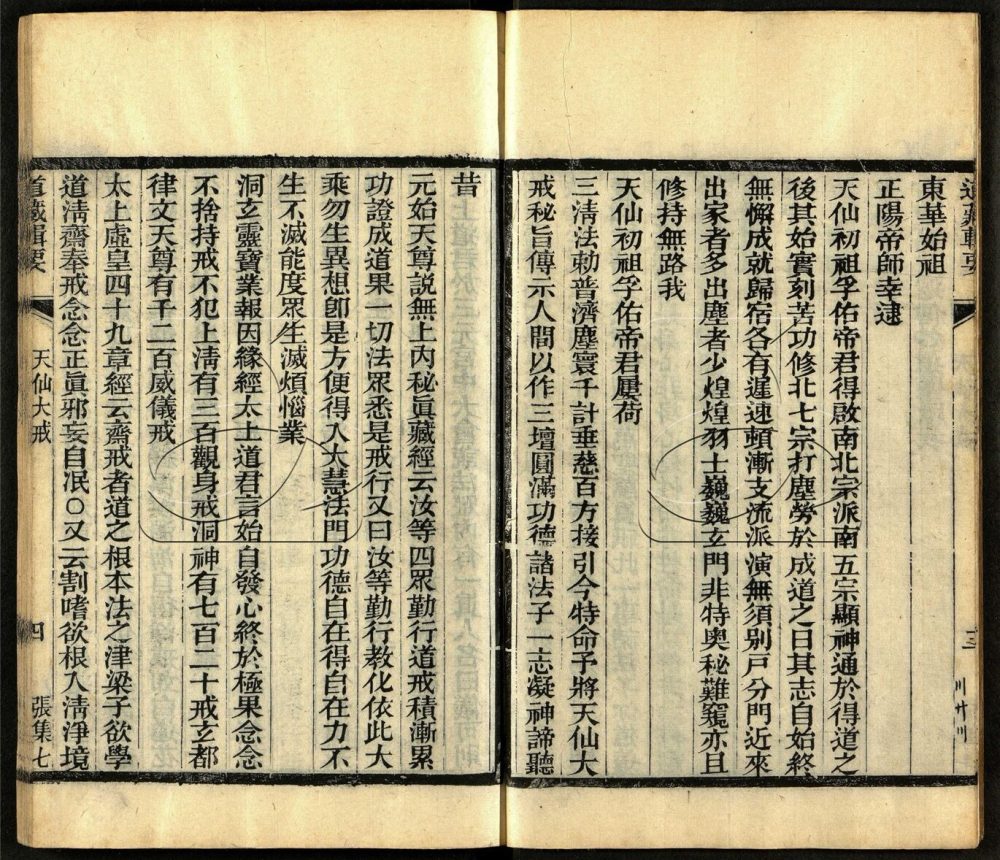 道藏輯要
東華始祖
正陽帝師幸逮
天仙初祖孚佑帝君得啟南北宗派南五宗顯神通於得道之
後其始實刻苦功修北七宗打塵勞於成道之日其志自始終
無懈成就歸宿各有遲速頓漸支流派演無須别戸分門近來
出家者多出塵者少煌煌羽士巍巍玄門非特奧秘難窺亦且
修持無路我
天仙初祖孚佑帝君屢荷
三淸法勅普濟塵寰千計垂慈百方接引今特命予將天仙大
戒秘旨傳示人間以作三壇圓滿功德諸法子一志凝神諦聽
昔
元始天尊説無上内秘眞藏經云汝等四眾勤行道戒積漸累
功證成道果一切法眾悉是戒行又曰汝等勤行教化依此大
乘勿生異想卽是方便得入大慧法門功德自在得自在力不
生不滅能度眾生滅煩惱業
洞玄靈寶業報因緣經太上道君言始自發心終於極果念念
不捨持戒不犯上淸有三百觀身戒洞神有七百二十戒玄都
律文天尊有千二百威儀戒
太上虛皇四十九章經云齋戒者道之根本法之津梁子欲學
道淸齋奉戒念念正眞邪妄自泯○又云割嗜欲根入淸淨境
道藏輯要 天仙大戒 四 張集七